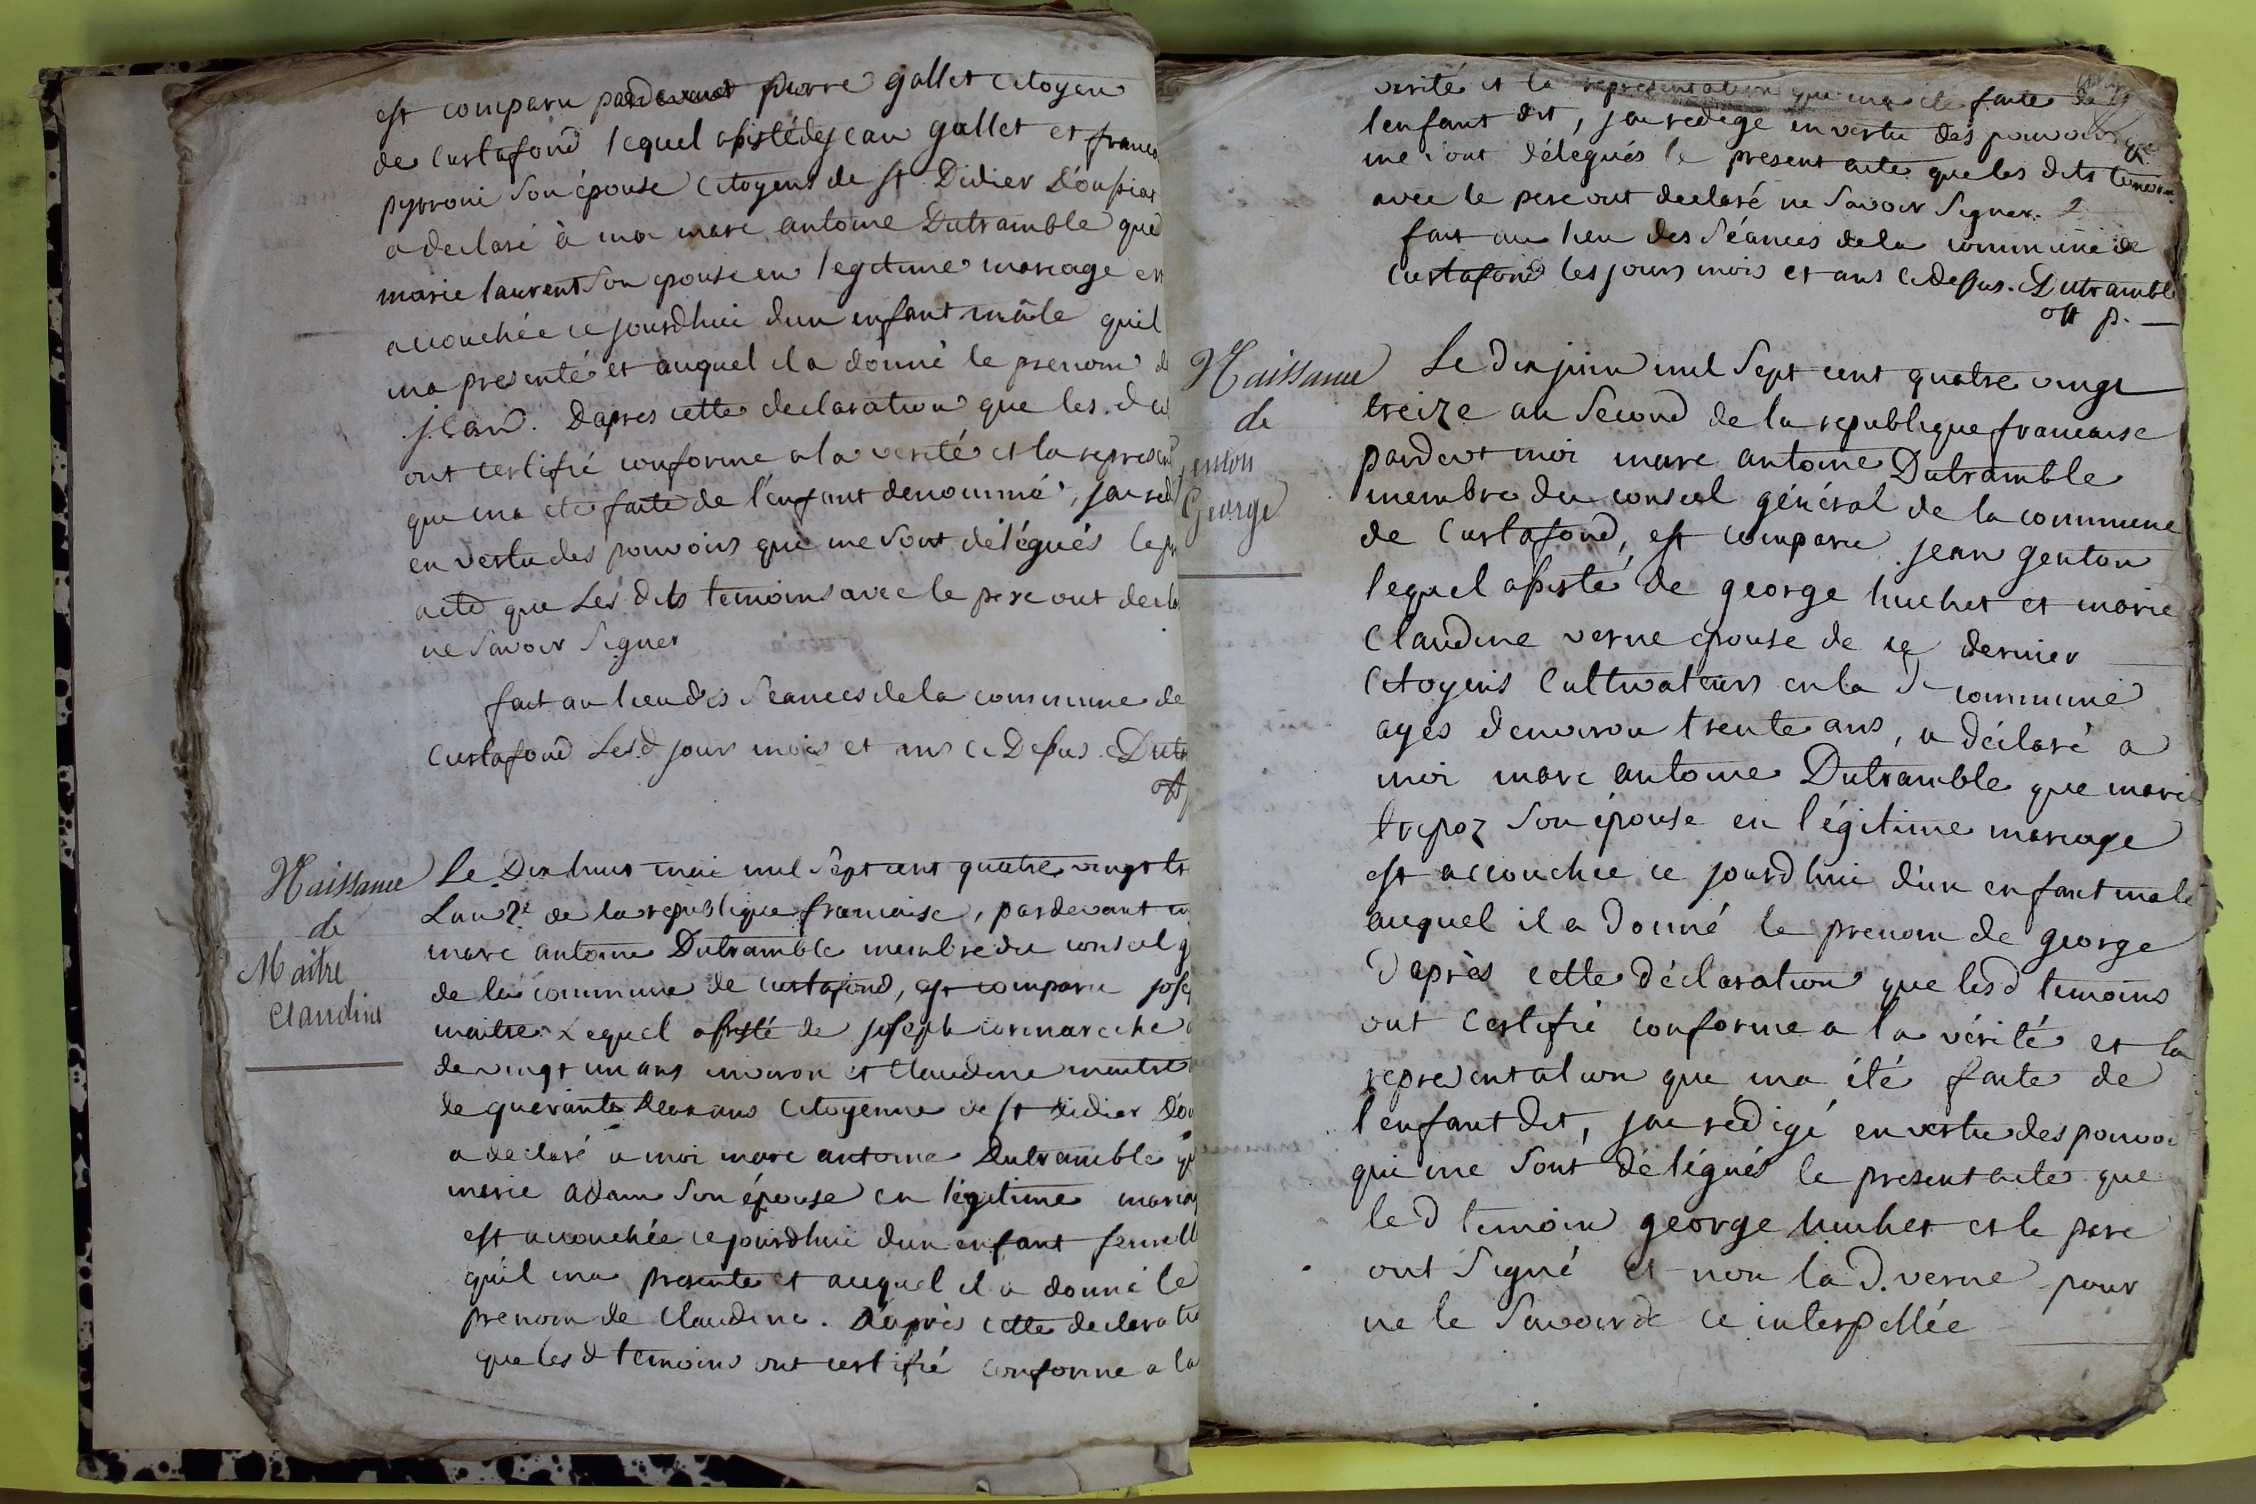 est comparu pardevant pierre gallet citoyen
de Curtafond lequel assisté de jean gallet et franco
pyrroni Son épouse Citoyens de st Didier D'oussiat
a declaré à moi marc antoine Dutramble que
marie laurent Son epouse en legitime mariage est
accouchée ce jourdhui dun enfant mâle quil
ma presenté et auquel il a donné le prenom d
jean. Dapres cette declaration que les. d
ont certifié conforme a la verité et la represen
que ma ete faite de l'enfant denommé, jai red
en vertu des pouvoirs qui me sont délégués le p
acte que Les dits temoins avec le pere ont decla
ne Savoir Signer
fait au lieu des Séances de la commune de
Curtafond Lesd jours mois et ans ci Dessus. Dutr
off
Naissance
de
Maitre
Claudine
Le Dix huit mai mil Sept cent quatre vingt tr
Lan 2e de la republique francaise, pardevant m
marc antoine Dutramble membre du conseil g
de la commune de curtafond, est comparu josep
maitre Lequel assisté de joseph cormareche
de vingt un ans environ et Claudine maitre
de quarante Deux ans Citoyenne de st Didier Dou
a declaré a moi marc antoine Dutramble qu
marie adam Son épouse en légitime mariag
est accouchée ce jourdhui dun enfant femell
quil ma presenté et auquel il a donné le
prenom de Claudine. D'après cette declaratio
que les d temoins ont certifié conforme a la
verité et la representation que ma ete faite de
lenfant dit, jai redigé en vertu des pouvoirs qui
me sont délégués le present acte que les dits temoins
avec le pere ont declaré ne Savoir Signer.
fait au lieu des Séances de la commune de
Curtafond les jours mois et ans ci dessus. Dutramble
off p.
Naissance
de
genton
George
Le dix juin mil Sept cent quatre vingt
treize an Second de la republique francaise
pardevt moi marc antoine Dutramble
membre du conseil général de la commune
de Curtafond, est comparu jean genton
lequel assisté de george huchet et marie
Claudine verne epouse de ce dernier
Citoyens Cultivateurs en la d commune
agés denviron trente ans, a déclaré a
moi marc antoine Dutramble que marie
trepoz Son épouse en légitime mariage
est accouchée ce jourdhui d'un enfant male
auquel il a Donné le prenom de george
D'après cette Déclaration que lesd temoins
ont Certifié conforme a la vérité et la
representation que ma été faite de
l'enfant dit, jai rédigé en vertu des pouvoi
qui me Sont délégués le present acte que
le d temoin george huchet et le pere
ont Signé et non la D. verne pour
ne le Savoir de ce interpellée